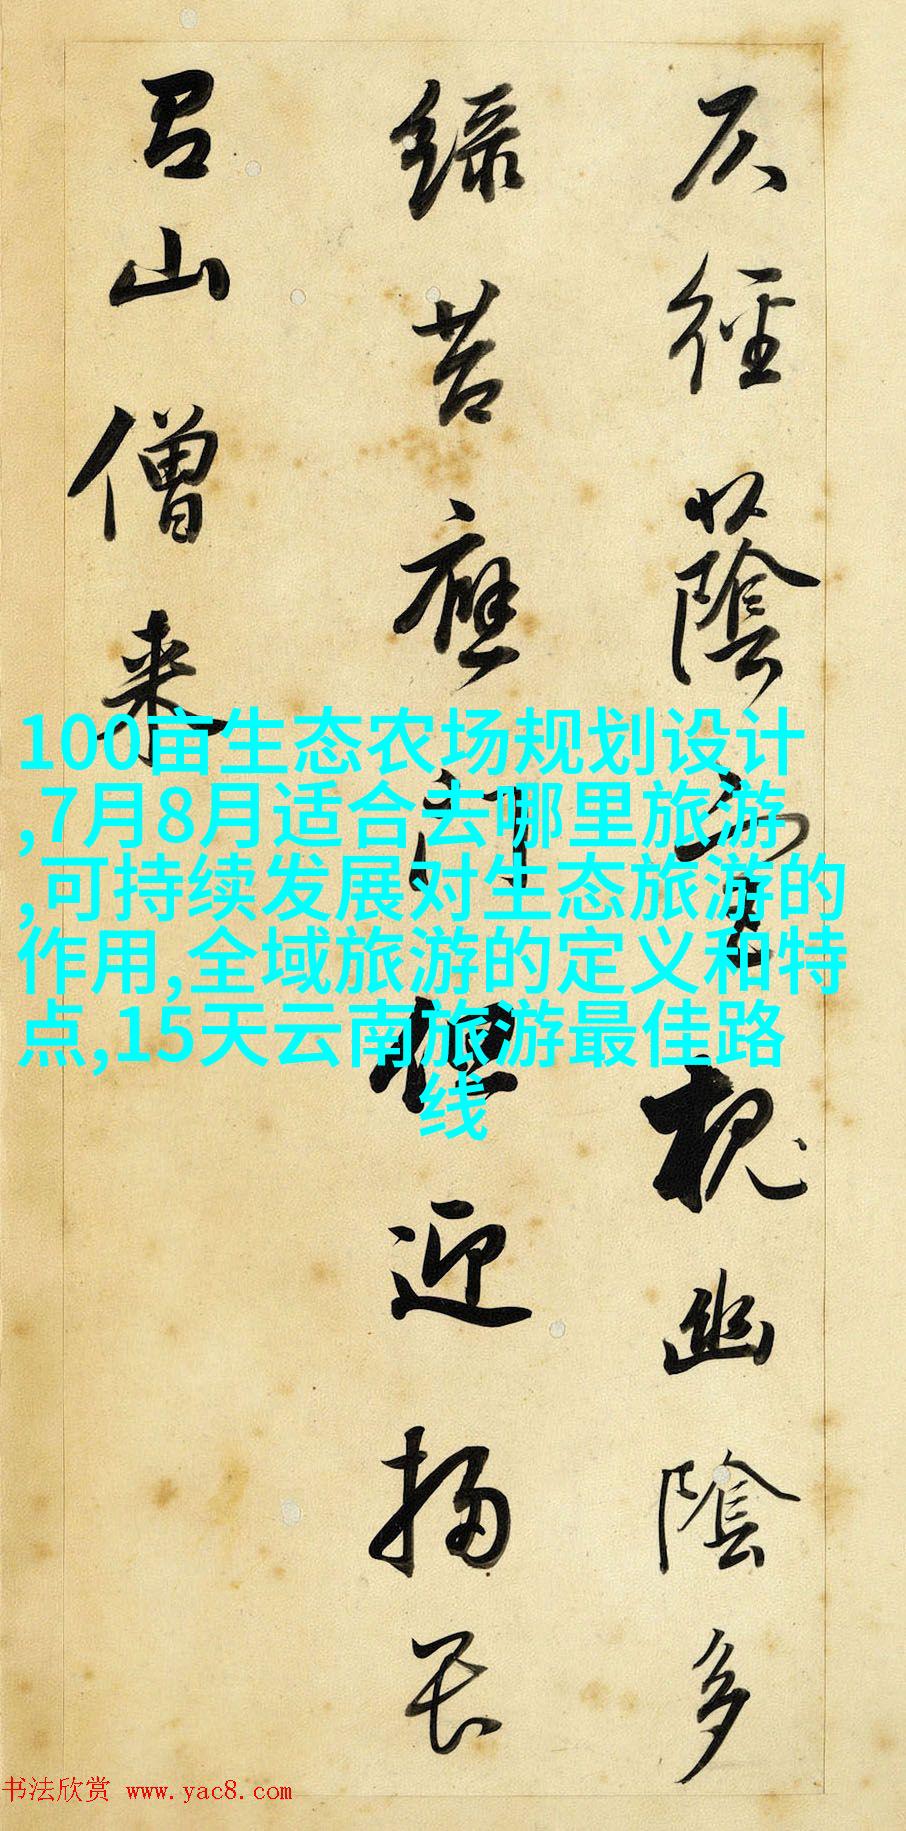 仄徑蔭宮槐幽陰多
綠苔應門但迎掃畏
有山僧来
100亩生态农场规划设计
,7月8月适合去哪里旅游
,可持续发展对生态旅游的
作用,全域旅游的定义和特
点,15天云南旅游最佳路
线
书法欣赏 www.yac8.com